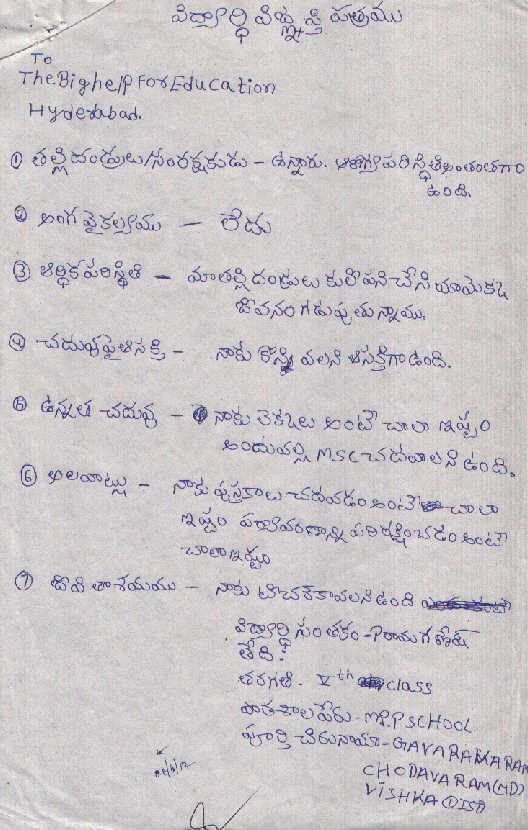 విద్యార్థి విజ్ఞప్తి పత్రము
To
The.Bighelp For Education
Hyderabad.
① తల్లిదండ్రులు/సంరక్షకుడు – ఉన్నారు. పరిస్థితి అంతంతగా
ఉంది.
② అంగ వైకల్యము – లేదు
③ ఆర్థిక పరిస్థితి – మా తల్లిదండ్రులు కులీపని చేసి
జీవనం గడుపుతున్నాము.
④ చదువుపై ఆసక్తి – నాకు ఆసక్తిగా ఉంది.
⑤ ఉన్నత చదువు – నాకు లెక్కలు అంటే చాలా ఇష్టం
అందువల్ల MSC చదవాలని ఉంది.
⑥ అలవాట్లు – నాకు పుస్తకాలు చదవడం అంటే చాలా
ఇష్టం పర్యావరణాన్ని పరిరక్షించడం అంటే
చాలా ఇష్టం
⑦ జీవితాశయము – నాకు టీచర్ కావలని ఉంది
విద్యార్థి సంతకం –
తేది:
తరగతి. Vth class
పాఠశాల పేరు – M.P.P SCHOOL
పూర్తి చిరునామా – GAVARAVARAM
CHODAVARAM(MD)
VISHKA (DIST)